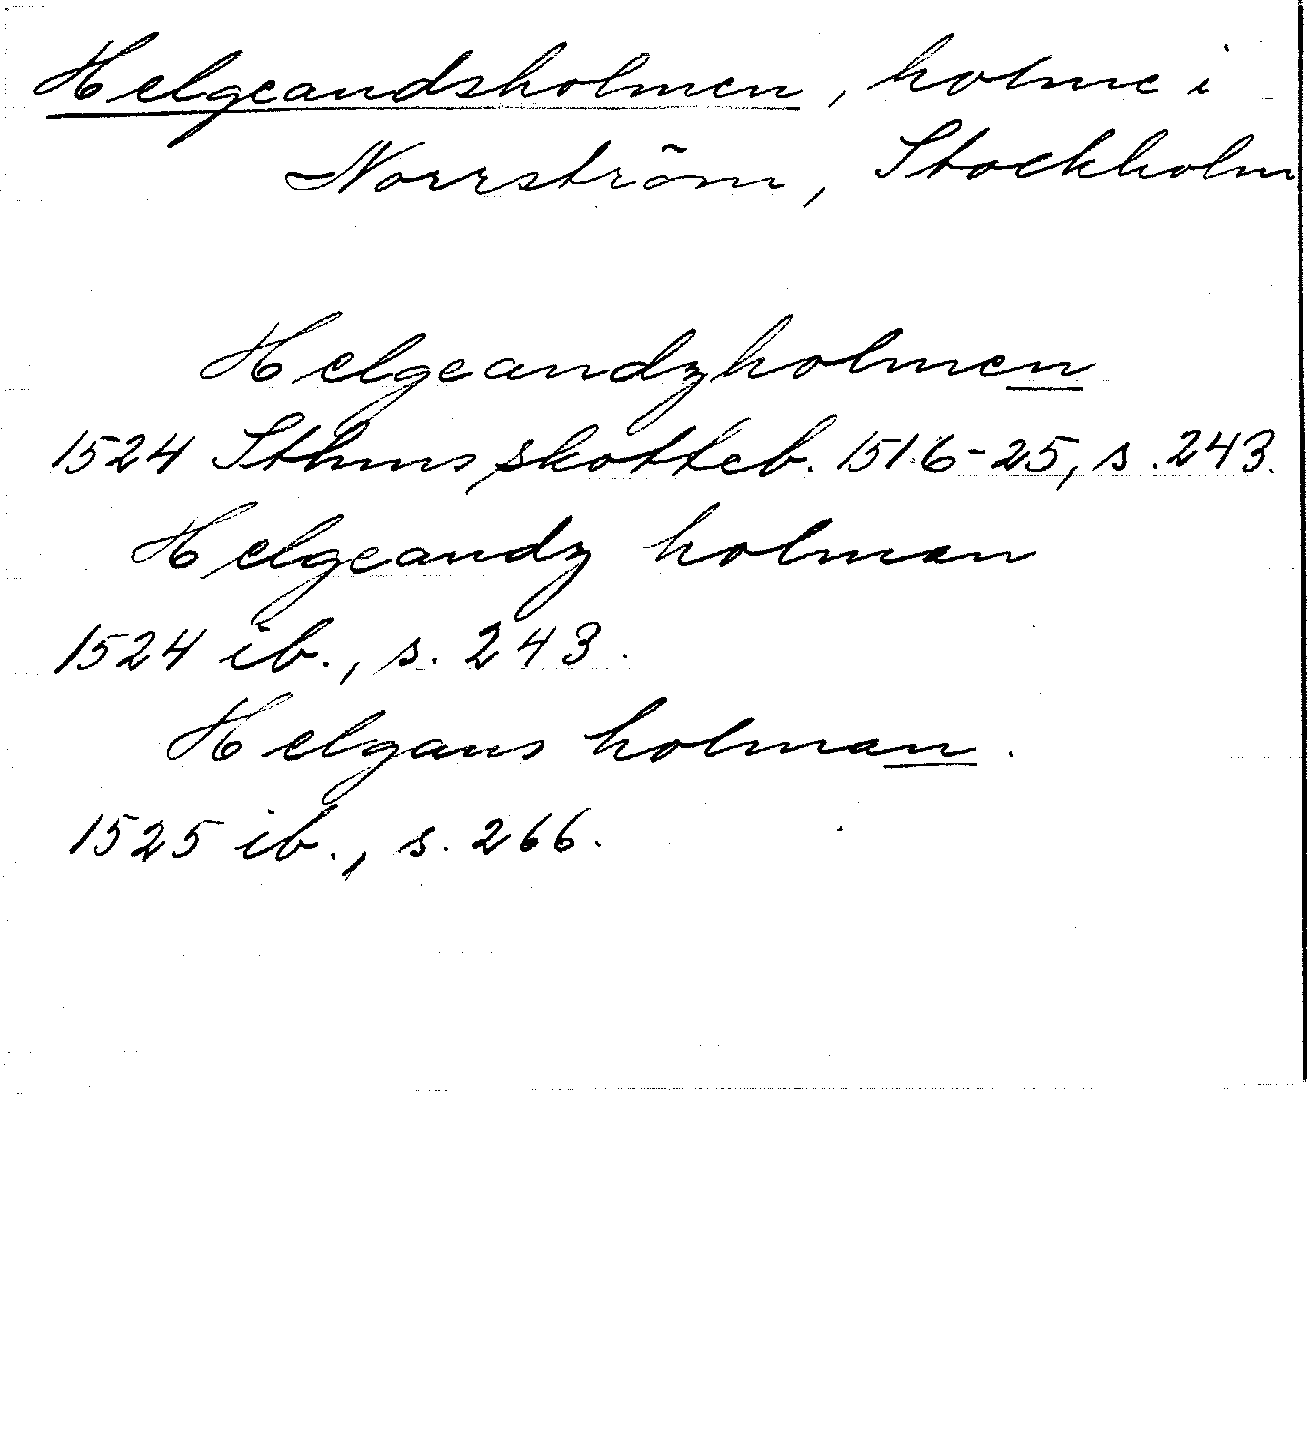 Helgeandsholmen, holme i
Norrström, Stockholm
Helgeandzholmen
1524 Sthms skotteb. 1516-25, s. 243.
Helgeandz holman
1524 ib., s. 243.
Helgans holman.
1525 ib., s. 266.